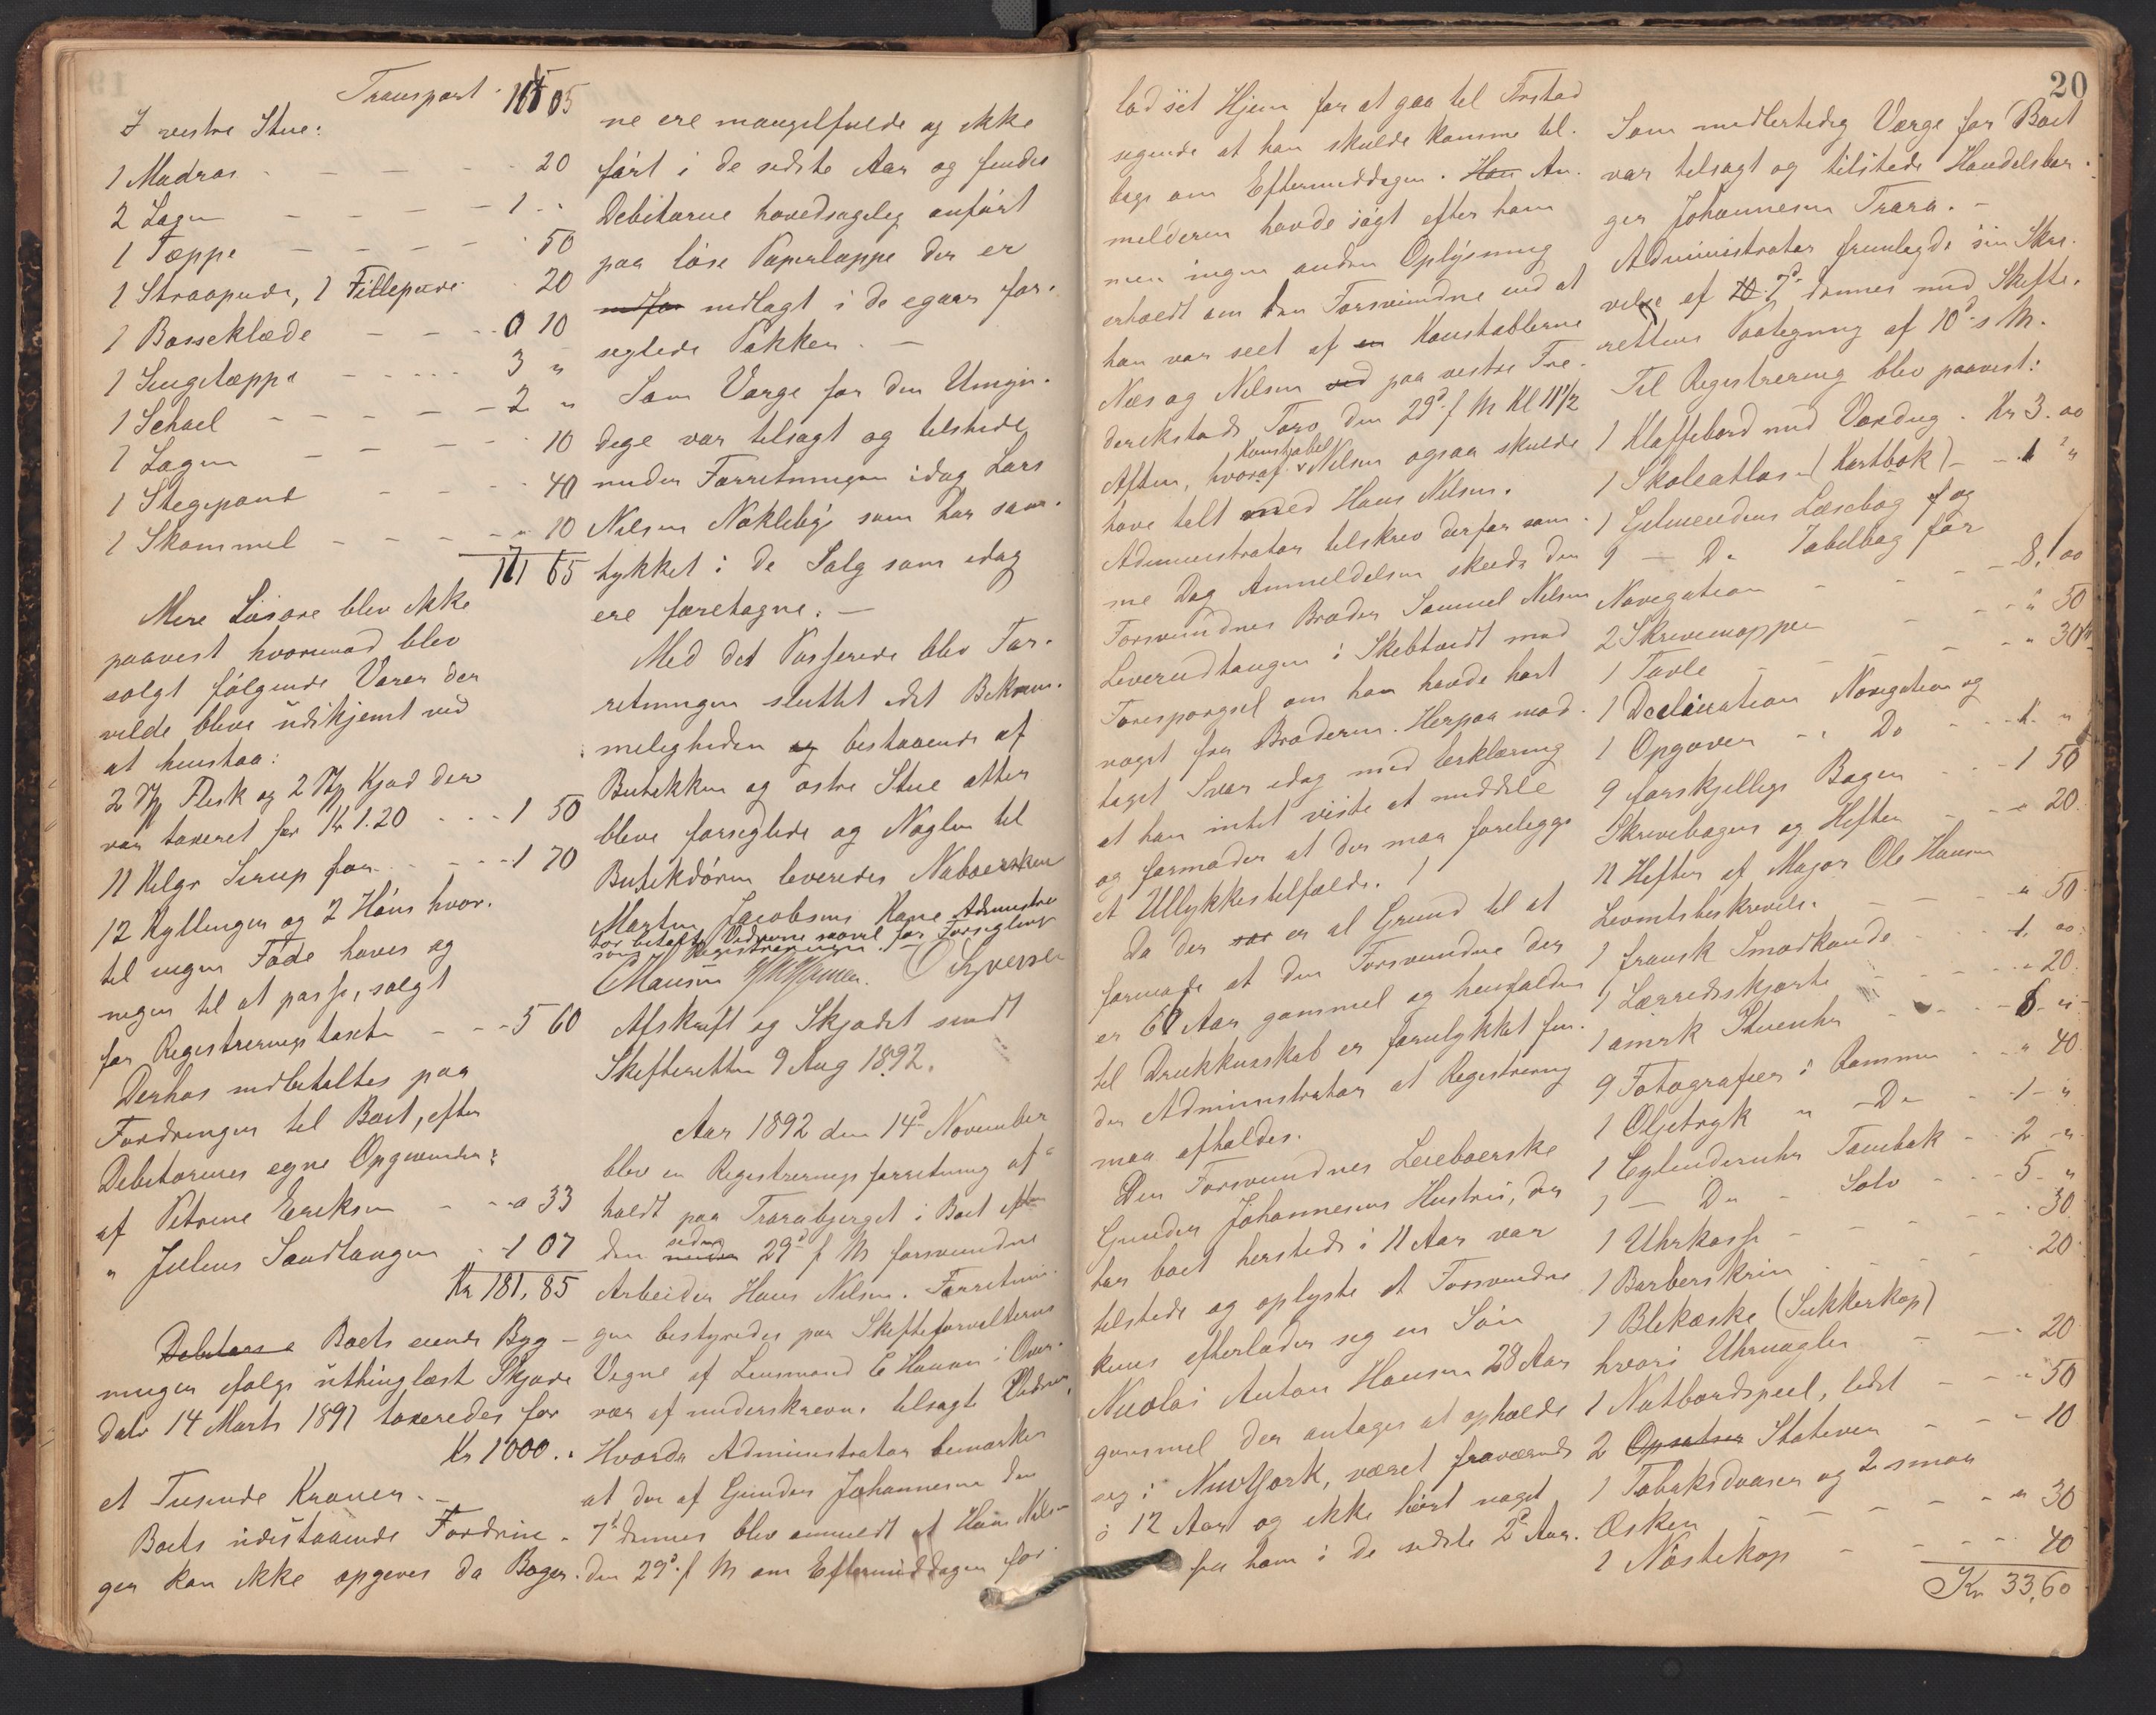 Transport 165 05
I vestre Stue:
1 Madras - - - - 20
2 Lagen - - - - 1 "
1 Tæppe - - - - 50
1 Straapude, 1 Fillepude 20
1 Bosseklæde - - - 0 10
1 Sengetæppe - - - 3 "
1 Schael - - - - - 2 "
1 Lagen - - - - 10
1 Stegepande - - - 40
1 Skammel - - - - " 10
171 65
Mere Løsøre blev ikke
paavist hvorimod blev
solgt følgende Varer der
vilde bleve udskjemt ved
at henstaa:
2 Kg Flesk og 2 Kg Kjød der
var taxeret for Kr 1.20 - - - 1 50
11 Kilgr Sirup for - - - - 1 70
12 Kyllinger og 2 Høns hvor-
til ingen Føde haves og
ingen til at passe, solgt
for Registreringstaxten - - - 5 60
Derhos indbetaltes paa
Fordringer til Boet, efter
Debitorenes egne Opgivender:
af Petrine Eriksen - - - " 33
" Julius Sandtangen - - 1 07
Kr 181,85
Debitore Boets eiende Byg-
ninger ifølge uthinglæst Skjøde
dats 14 Marts 1891 taxeredes for
Kr 1000.
et Tusende Kroner. -
Boets udestaaende Fordrin-
ger kan ikke opgives da Bøger-
ne ere mangelfulde og ikke
ført i de sidste Aar og findes
Debitorene hovedsagelig anført
paa løse Papirlappe der er
indfor indlagt i de egaars for-
seglede Pakker. -
Som Værge for den Umyn-
dige var tilsagt og tilstede
under Forretningen idag Lars
Nilsen Nøkleby som har sam-
tykket i de Salg som idag
ere foretagne. -
Med det Passerede blev For-
retningen sluttet idet Bekvem-
meligheden og bestaaende af
Butikken og østre Stue atter
bleve forseglede og Nøglen til
Butikdøren leveredes Naboersken
Marten Jacobsens Kone Administra
tor betalte Vidnerne saavel for Forseglingen
som Registreringen. -
E Hansen O Syversen
Afskrift og Skjødet sendt
Skifteretten 9 Aug 1892.
Aar 1892 den 14d November
blev en Registreringsforretning af-
holdt paa Trarabjerget i Boet efter
den siden 29d f M forsvundne
Arbeider Hans Nilsen. Forretnin-
gen bestyredes paa Skifteforvalterens
Vegne af Lensmand E Hansen i Over-
vær af underskrevne tilsagte Vidner.
Hvorda Administrator bemærker
at der af Gunder Johannesen den
7d dennes blev anmeldt at Hans Nilsen
den 29d f M om Eftermiddagen for-
20
lod sit Hjem for at gaa til Frstad
sigende at han skulde komme til-
bage om Eftermiddagen. Han An-
melderen havde søgt efter ham
men ingen anden Oplysning
erholdt om den Forsvundne end at
han var seet af en Konstablerne
Næs og Nilsen ved paa vestre Fre-
derikstads Torv den 29d f M Kl 11 1/2
Aften, hvoraf Konstabel Nilsen ogsaa skulde
have talt med Hans Nilsen.
Administrator tilskrev derfor sam-
me Dag Anmeldelsen skeede den
Forsvundnes Broder Samuel Nilsen
Leverudtangen i Skebtvedt med
Forespørgsel om han havde hørt
noget fra Broderen. Herpaa mod-
taget Svar idag med Erklæring
at han intet vidste at meddele
og formoder at der maa foreligge
et Ullykkestilfælde.
Da der var er al Grund til at
formode at den Forsvundne der
er 67 Aar gammel og henfalden
til Drukkenskab er forulykket fin-
der Administrator at Registrering
maa afholdes.
Den Forsvundnes Leieboerske
Gunder Johannesens Hustru, der
har boet hersteds i 11 Aar var
tilstede og oplyste at Forsvundne
kuns efterlader sig en Søn
Nicolai Anton Hansen 28 Aar
gammel der antages at opholde
sig i NewYork, været fraværende
i 12 Aar og ikke hørt noget
fra ham i de sidste 2d Aar.
Som midlertidig Værge for Boet
var tilsagt og tilstede Handelsbor-
ger Johannesen Trara. -
Administrator fremlegde sin Skri-
velse af 10 7d dennes med Skifte-
rettens Paategning af 10d s M.
Til Registrering blev paavist:
1 Klaffebord med Voxdug - Kr 3.00
1 Skoleatlas (Kartbok) - - 1 "
1 Gjelmeudens Læsebog f og
1 - Do Tabelbog for
Navigation - - - - 8,00
2 Skrivemapper - - - " 50
1 Tavle - - - - " 30
1 Declination Navigation og
1 Opgaver - Do - - - 1 "
9 forskjellige Bøger - - 1 50
Skrivebøger og Hefter - - " 20
11 Hefter af Major Ole Hansen
Levnetsbeskrivelse - - - " 50
1 fransk Smørkande - - - 1.00
1 Lærredsskjorte - - - " 20
1 amrk Stueuhr - - - 6 "
9 Fotografier i Rammer - " 40
1 Oljetryk " Do - - 1 "
1 Cylinderuhr Tombak - 2 "
1 - Do - Sølv - - 5 "
1 Uhrkasse - - - 30
1 Barberskrin - - - 20
1 Blikæske (Sukkerkop)
hvori Uhrnøgler - - - 20
1 Natbordspeil, lidet - - " 50
2 Opsatser Stativer - - - 10
1 Tobaksdaaser og 2 smaa
Æsker - - - - " 30
1 Nøstekop - - - - 40
Kr 33,60